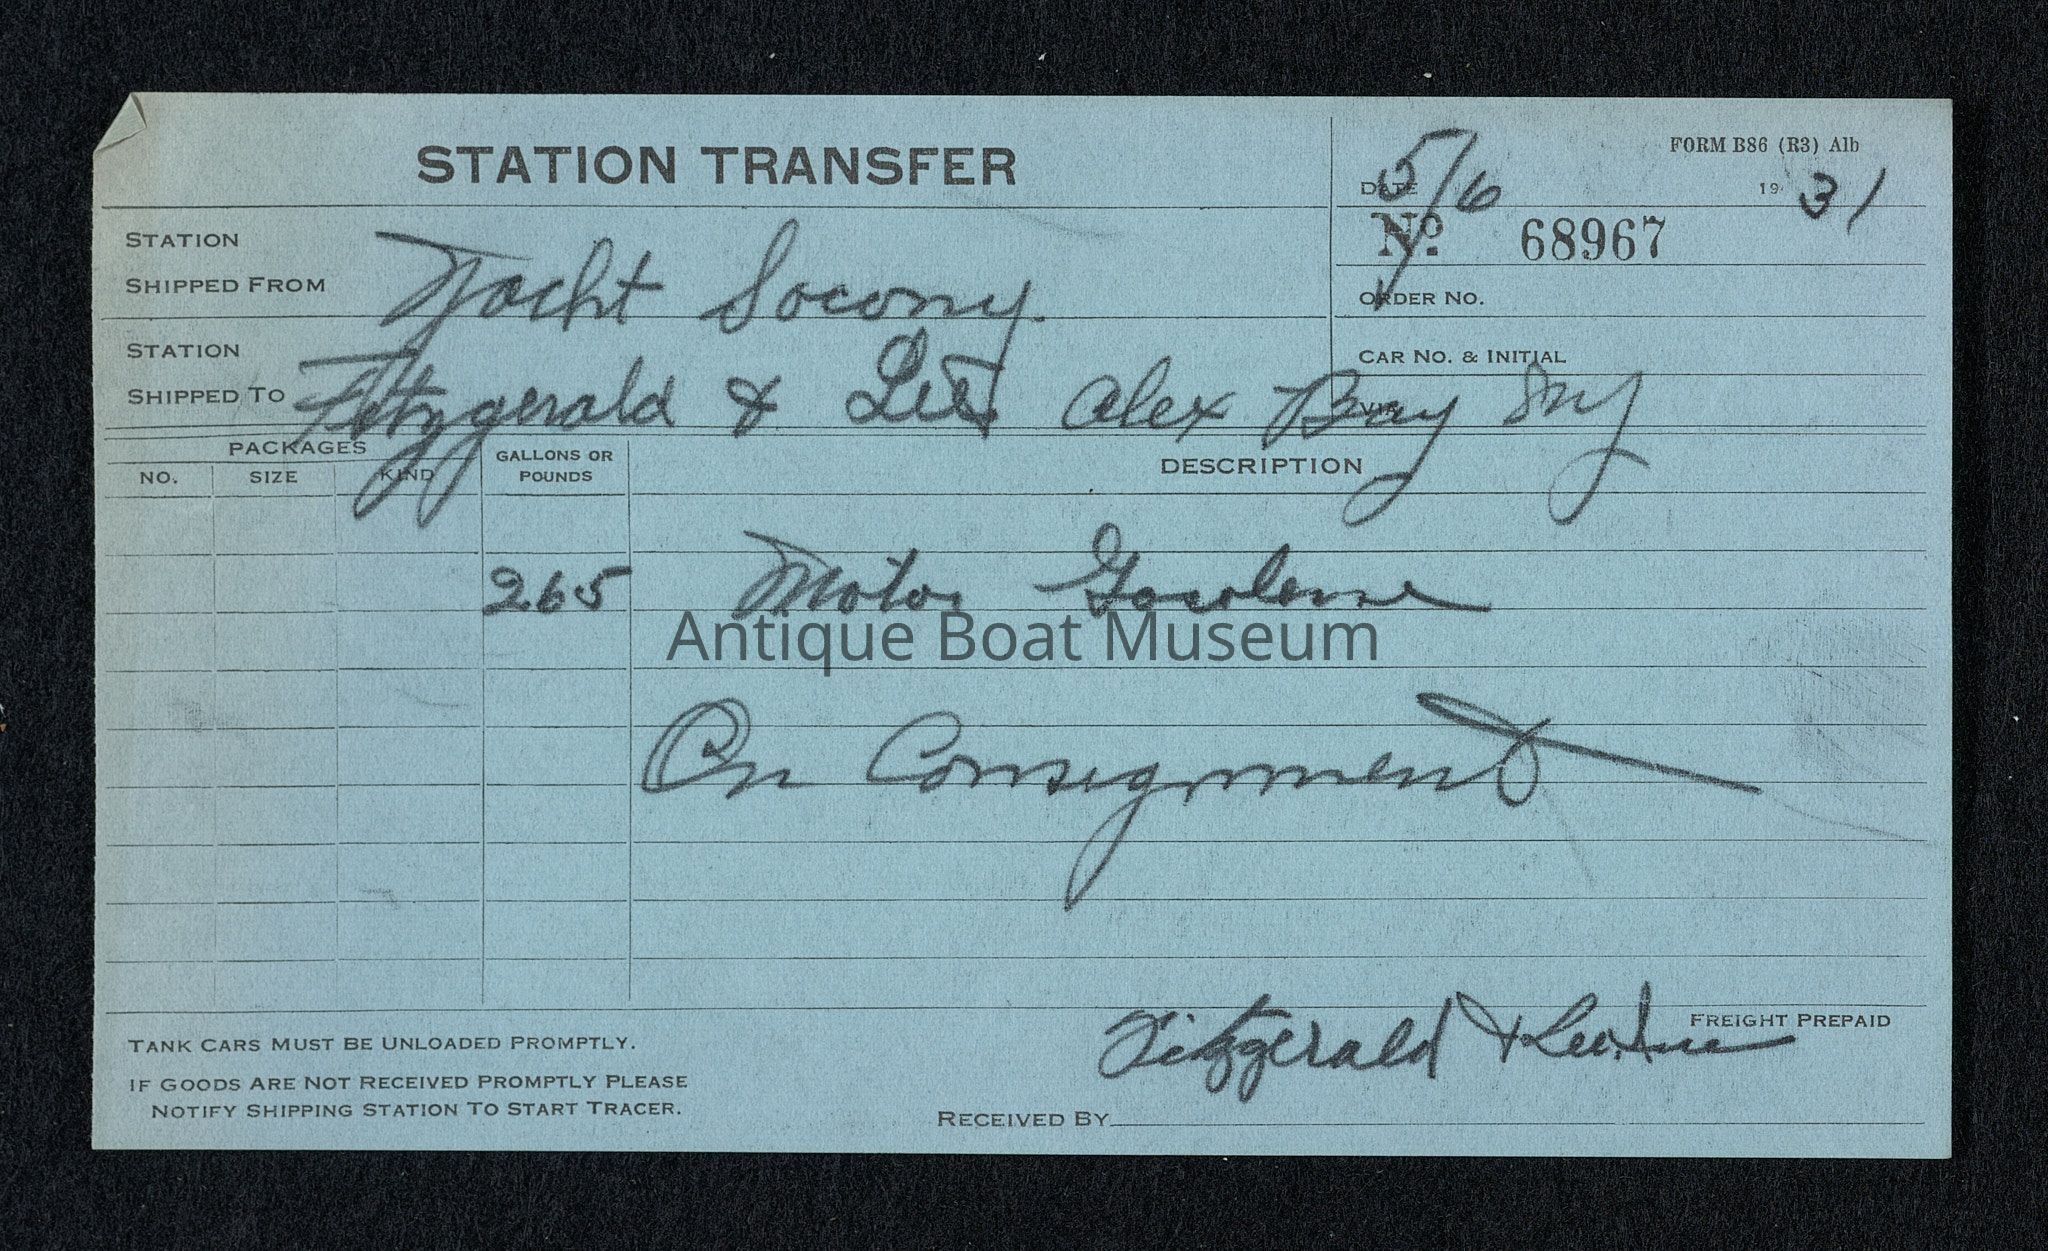 FORM B86 (R3) Alb
STATION TRANSFER
DATE 5/6 19 31
No. 68967
STATION
SHIPPED FROM Yacht Socony
ORDER NO.
STATION
SHIPPED TO Fitzgerald & Lee Alex Bay NY
CAR NO. & INITIAL
VIA
PACKAGES
NO. SIZE KIND
GALLONS OR
POUNDS
DESCRIPTION
265 Motor Gasolene
Antique Boat Museum
On Consignment
Fitzgerald & Lee
FREIGHT PREPAID
TANK CARS MUST BE UNLOADED PROMPTLY.
IF GOODS ARE NOT RECEIVED PROMPTLY PLEASE
NOTIFY SHIPPING STATION TO START TRACER.
RECEIVED BY